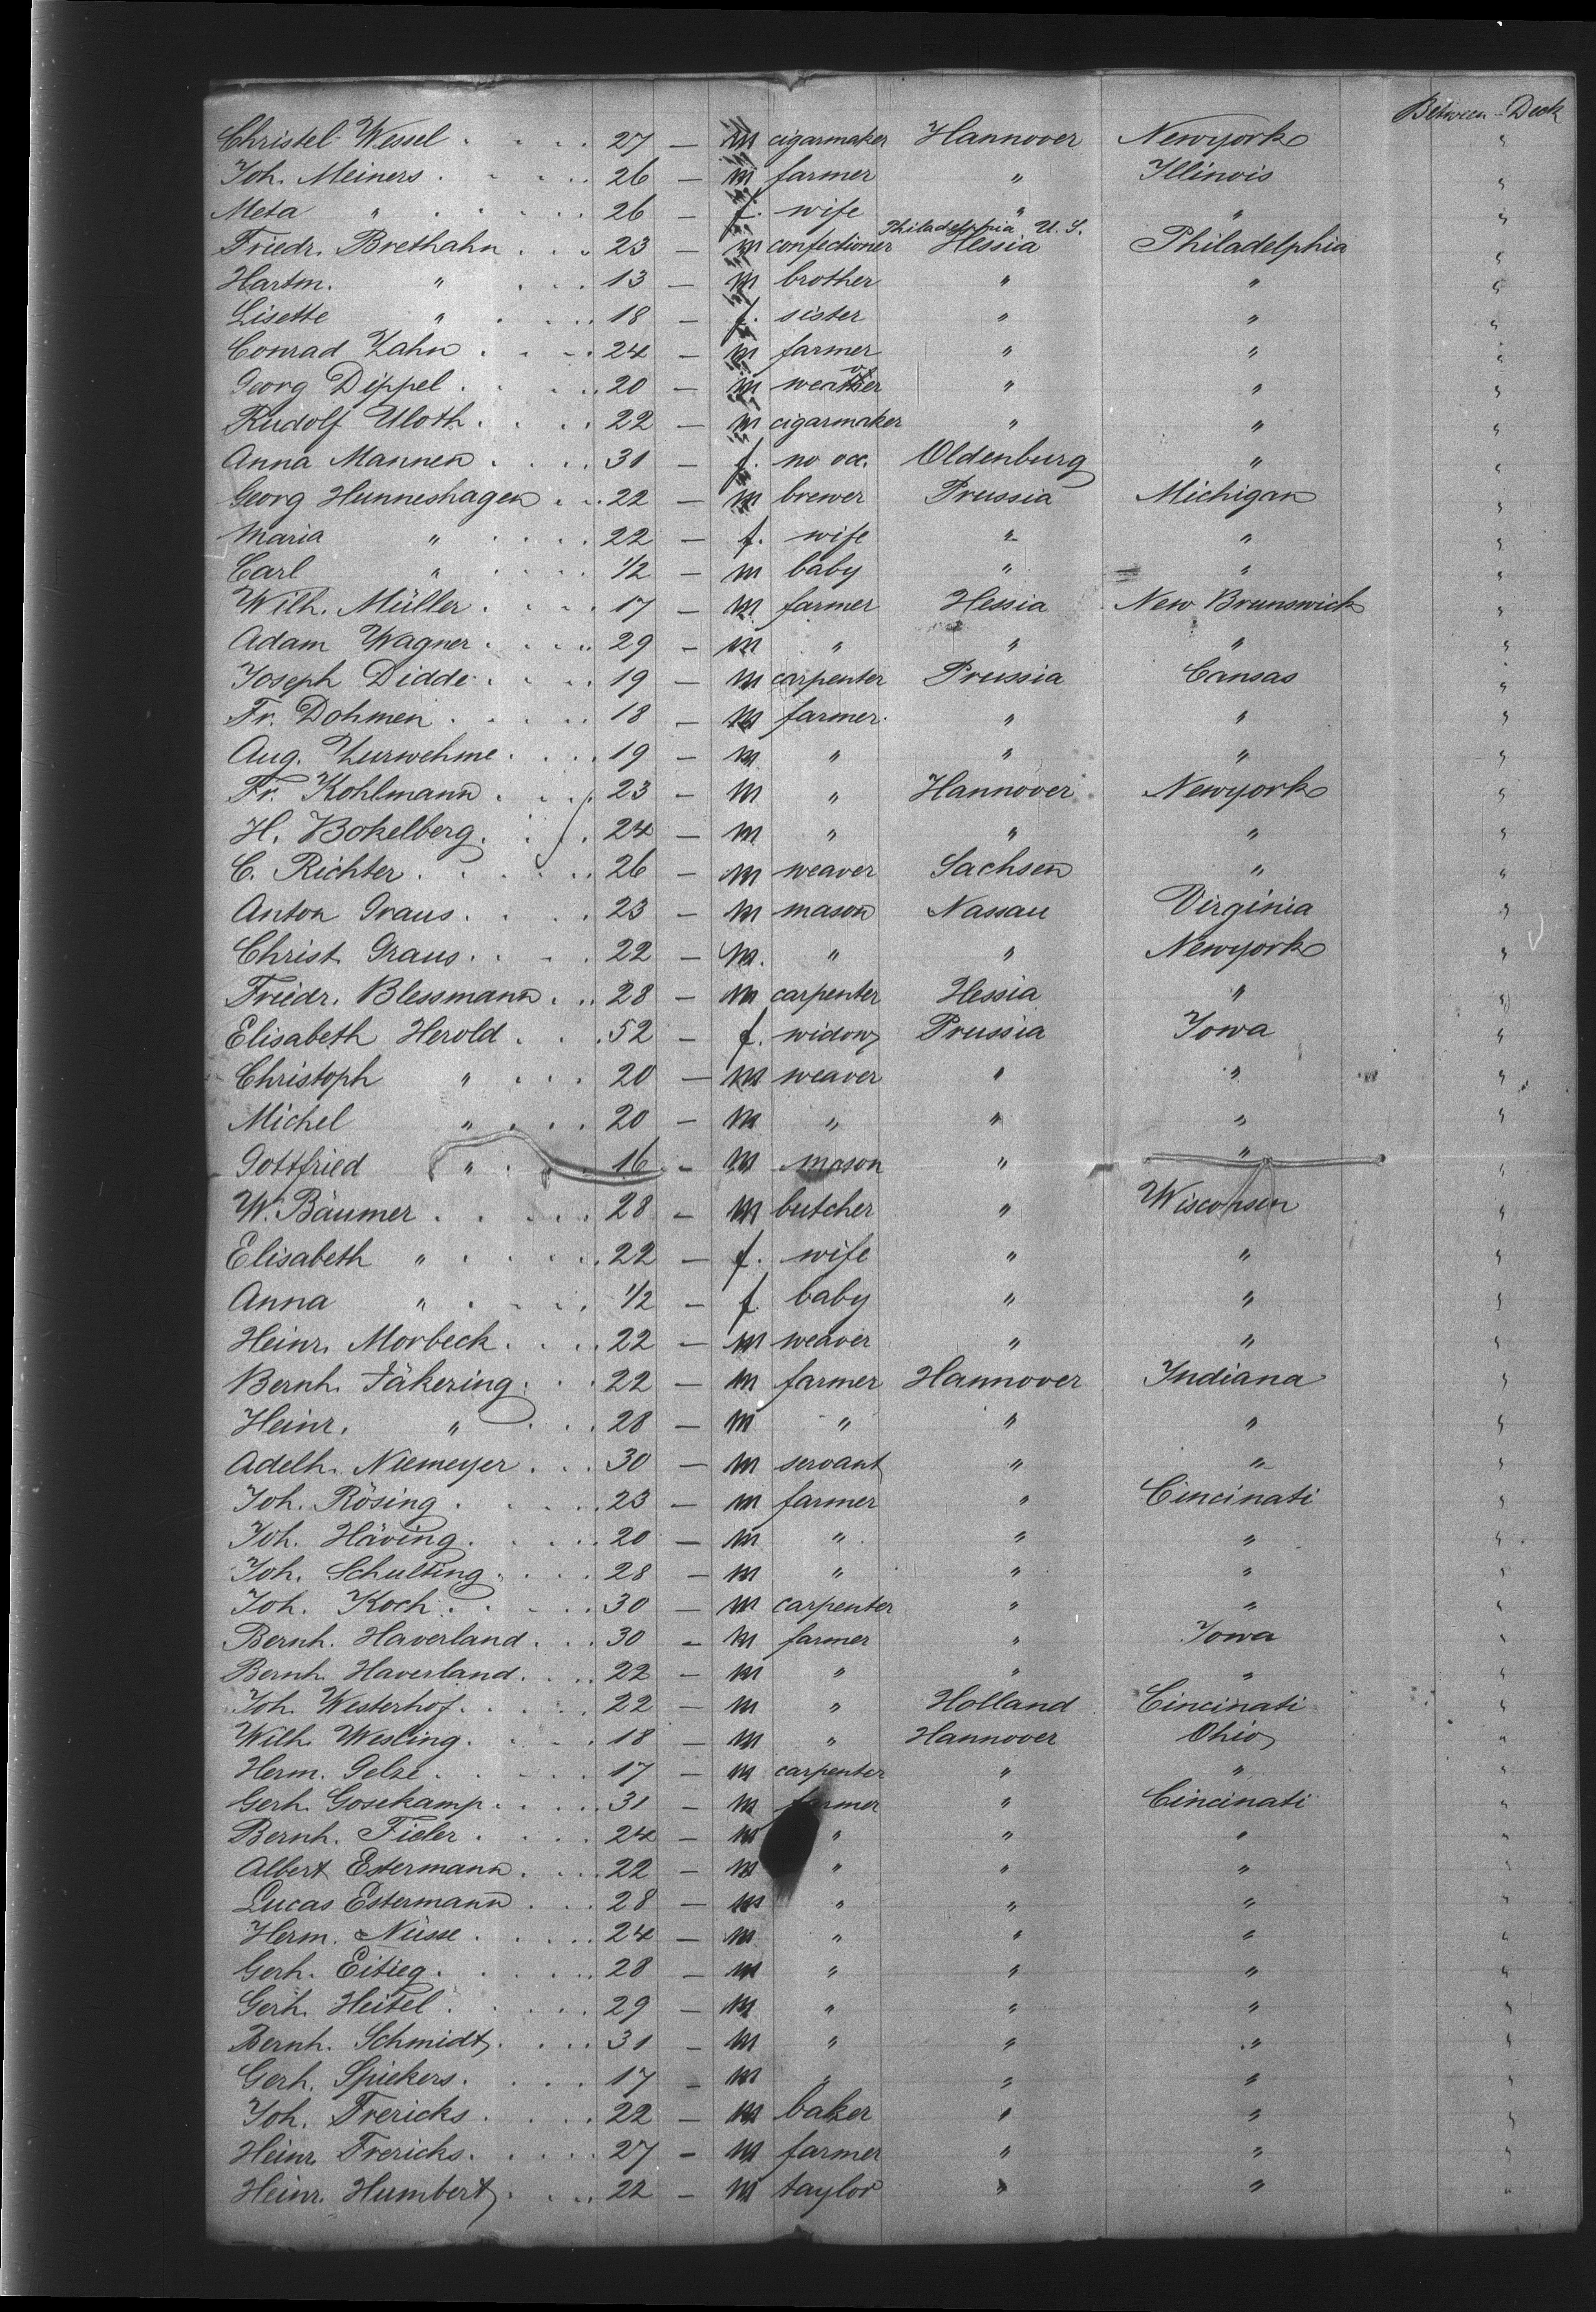 Between-Deck
Christel Wessel . . . . 27 — m cigarmaker Hannover Newyork "
Joh. Meiners . . . . . 26 — m farmer " Illinois "
Meta " . . . . . 26 — f. wife " " "
Philadelphia U. S.
Friedr. Brethahn . . . 23 — m confectioner Hessia Philadelphia "
Hartm. " . . . 13 — m brother " " "
Lisette " . . . . 18 — f. sister " " "
Conrad Zahn . . . . 24 — m farmer " " "
Georg Dippel . . . . 20 — m " " "
Rudolf Uloth . . . . 22 — m cigarmaker " " "
Anna Mannen . . . . 31 — f. no occ. Oldenburg " "
Georg Hunneshagen . . . 22 — m brewer Prussia Michigan "
Maria " . . . . 22 — f. wife " " "
Carl " . . . . 1/2 — m baby " " "
Wilh. Müller . . . . 17 — m farmer Hessia New Brunswick "
Adam Wagner . . . . 29 — m " " " "
Joseph Didde . . . . 19 — m carpenter Prussia Cansas "
Fr. Dohmen . . . . . 18 — m farmer. " " "
Aug. Zurwehme . . . . 19 — m " " " "
Fr. Kohlmann . . . . 23 — m " Hannover Newyork "
H. Bokelberg . . . . 24 — m " " " "
C. Richter . . . . . 26 — m weaver Sachsen " "
Anton Graus . . . . 23 — m mason Nassau Virginia "
Christ Graus . . . . 22 — m. " " Newyork "
Friedr. Blessmann . . . 28 — m carpenter Hessia " "
Elisabeth Herold . . . 52 — f. widow Prussia Iowa "
Christoph " . . . 20 — m weaver " " "
Michel " . . . 20 — m " " " "
Gottfried " . . . 16 — m mason " " "
W. Bäumer . . . . . 28 — m butcher " Wisconsin "
Elisabeth " . . . . 22 — f. wife " " "
Anna " . . . . 1/2 — f. baby " " "
Heinr. Morbeck . . . . 22 — m weaver " " "
Bernh. Fäkering . . . 22 — m farmer Hannover Indiana "
Heinr. " . . . 28 — m " " " "
Adelh. Niemeyer . . . 30 — m servant " " "
Joh. Rösing . . . . . 23 — m farmer " Cincinati "
Joh. Häving . . . . . 20 — m " " " "
Joh. Schulting . . . . 28 — m " " " "
Joh. Koch . . . . . 30 — m carpenter " " "
Bernh. Haverland . . . 30 — m farmer " Iowa "
Bernh. Haverland . . . 22 — m " " " "
Joh. Westerhof . . . . 22 — m " Holland Cincinati "
Wilh. Wesling . . . . 18 — m " Hannover Ohio "
Herm. Gelze . . . . . 17 — m carpenter " " "
Gerh. Gosekamp . . . . 31 — m farmer " Cincinati "
Bernh. Fieler . . . . 24 — m " " " "
Albert Estermann . . . 22 — m " " " "
Lucas Estermann . . . 28 — m " " " "
Herm. Nüsse . . . . . 24 — m " " " "
Gerh. Eitieg . . . . . 28 — m " " " "
Gerh. Heitel . . . . . 29 — m " " " "
Bernh. Schmidt . . . . 31 — m " " " "
Gerh. Spiekers . . . . 17 — m " " " "
Joh. Frericks . . . . 22 — m baker " " "
Heinr. Frericks . . . . 27 — m farmer " " "
Heinr. Humbert . . . . 22 — m taylor " " "